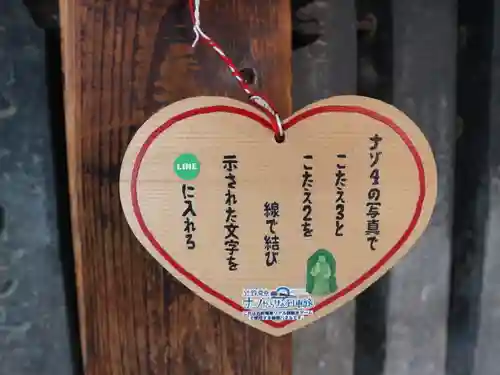 ナゾ4の写真で
こたえ3と
こたえ2を
線で結び
示された文字を
LINE
に入れろ